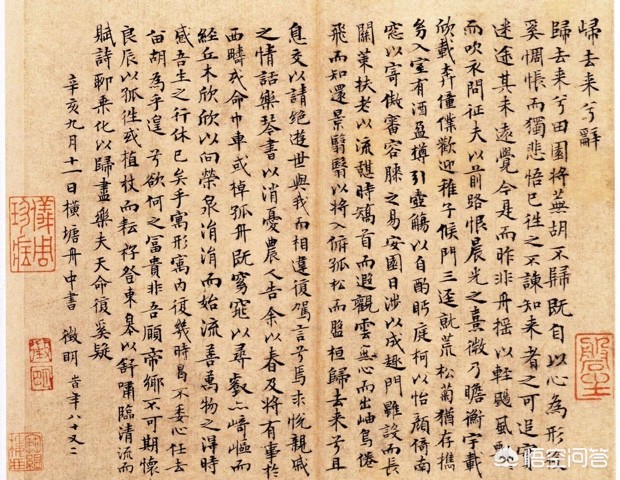 歸去来兮辭
歸去来兮田園將蕪胡不歸既自以心為形役
奚惆悵而獨悲悟已往之不諫知来者之可追寔
迷途其未遠覺今是而昨非舟摇以輕颺風飄飄
而吹衣問征夫以前路恨晨光之熹微乃瞻衡宇載
欣載奔僮僕歡迎稚子候門三逕就荒松菊猶存攜
㓜入室有酒盈樽引壺觴以自酌眄庭柯以怡顔倚南
窓以寄傲審容膝之易安園日涉以成趣門雖設而長
關策扶老以流憩時矯首而遐觀雲無心而出岫鳥倦
飛而知還景翳翳以將入撫孤松而盤桓歸去来兮且
息交以請絶遊世與我而相違復駕言兮焉求悦親戚
之情話樂琴書以消憂農人告余以春及將有事於
西疇或命巾車或棹孤舟既窈窕以尋壑亦崎嶇而
經丘木欣欣以向榮泉涓涓而始流善萬物之得時
感吾生之行休已矣乎寓形寓内復幾時曷不委心任去
留胡為乎遑遑兮欲何之冨貴非吾願帝鄉不可期懷
良辰以孤往或植杖而耘耔登東皋以舒嘯臨清流而
賦詩聊乘化以歸盡樂夫天命復奚疑
辛亥九月十一日橫塘舟中書 徵明 旹年八十又二
儀周珍藏
徵明
悟空问答